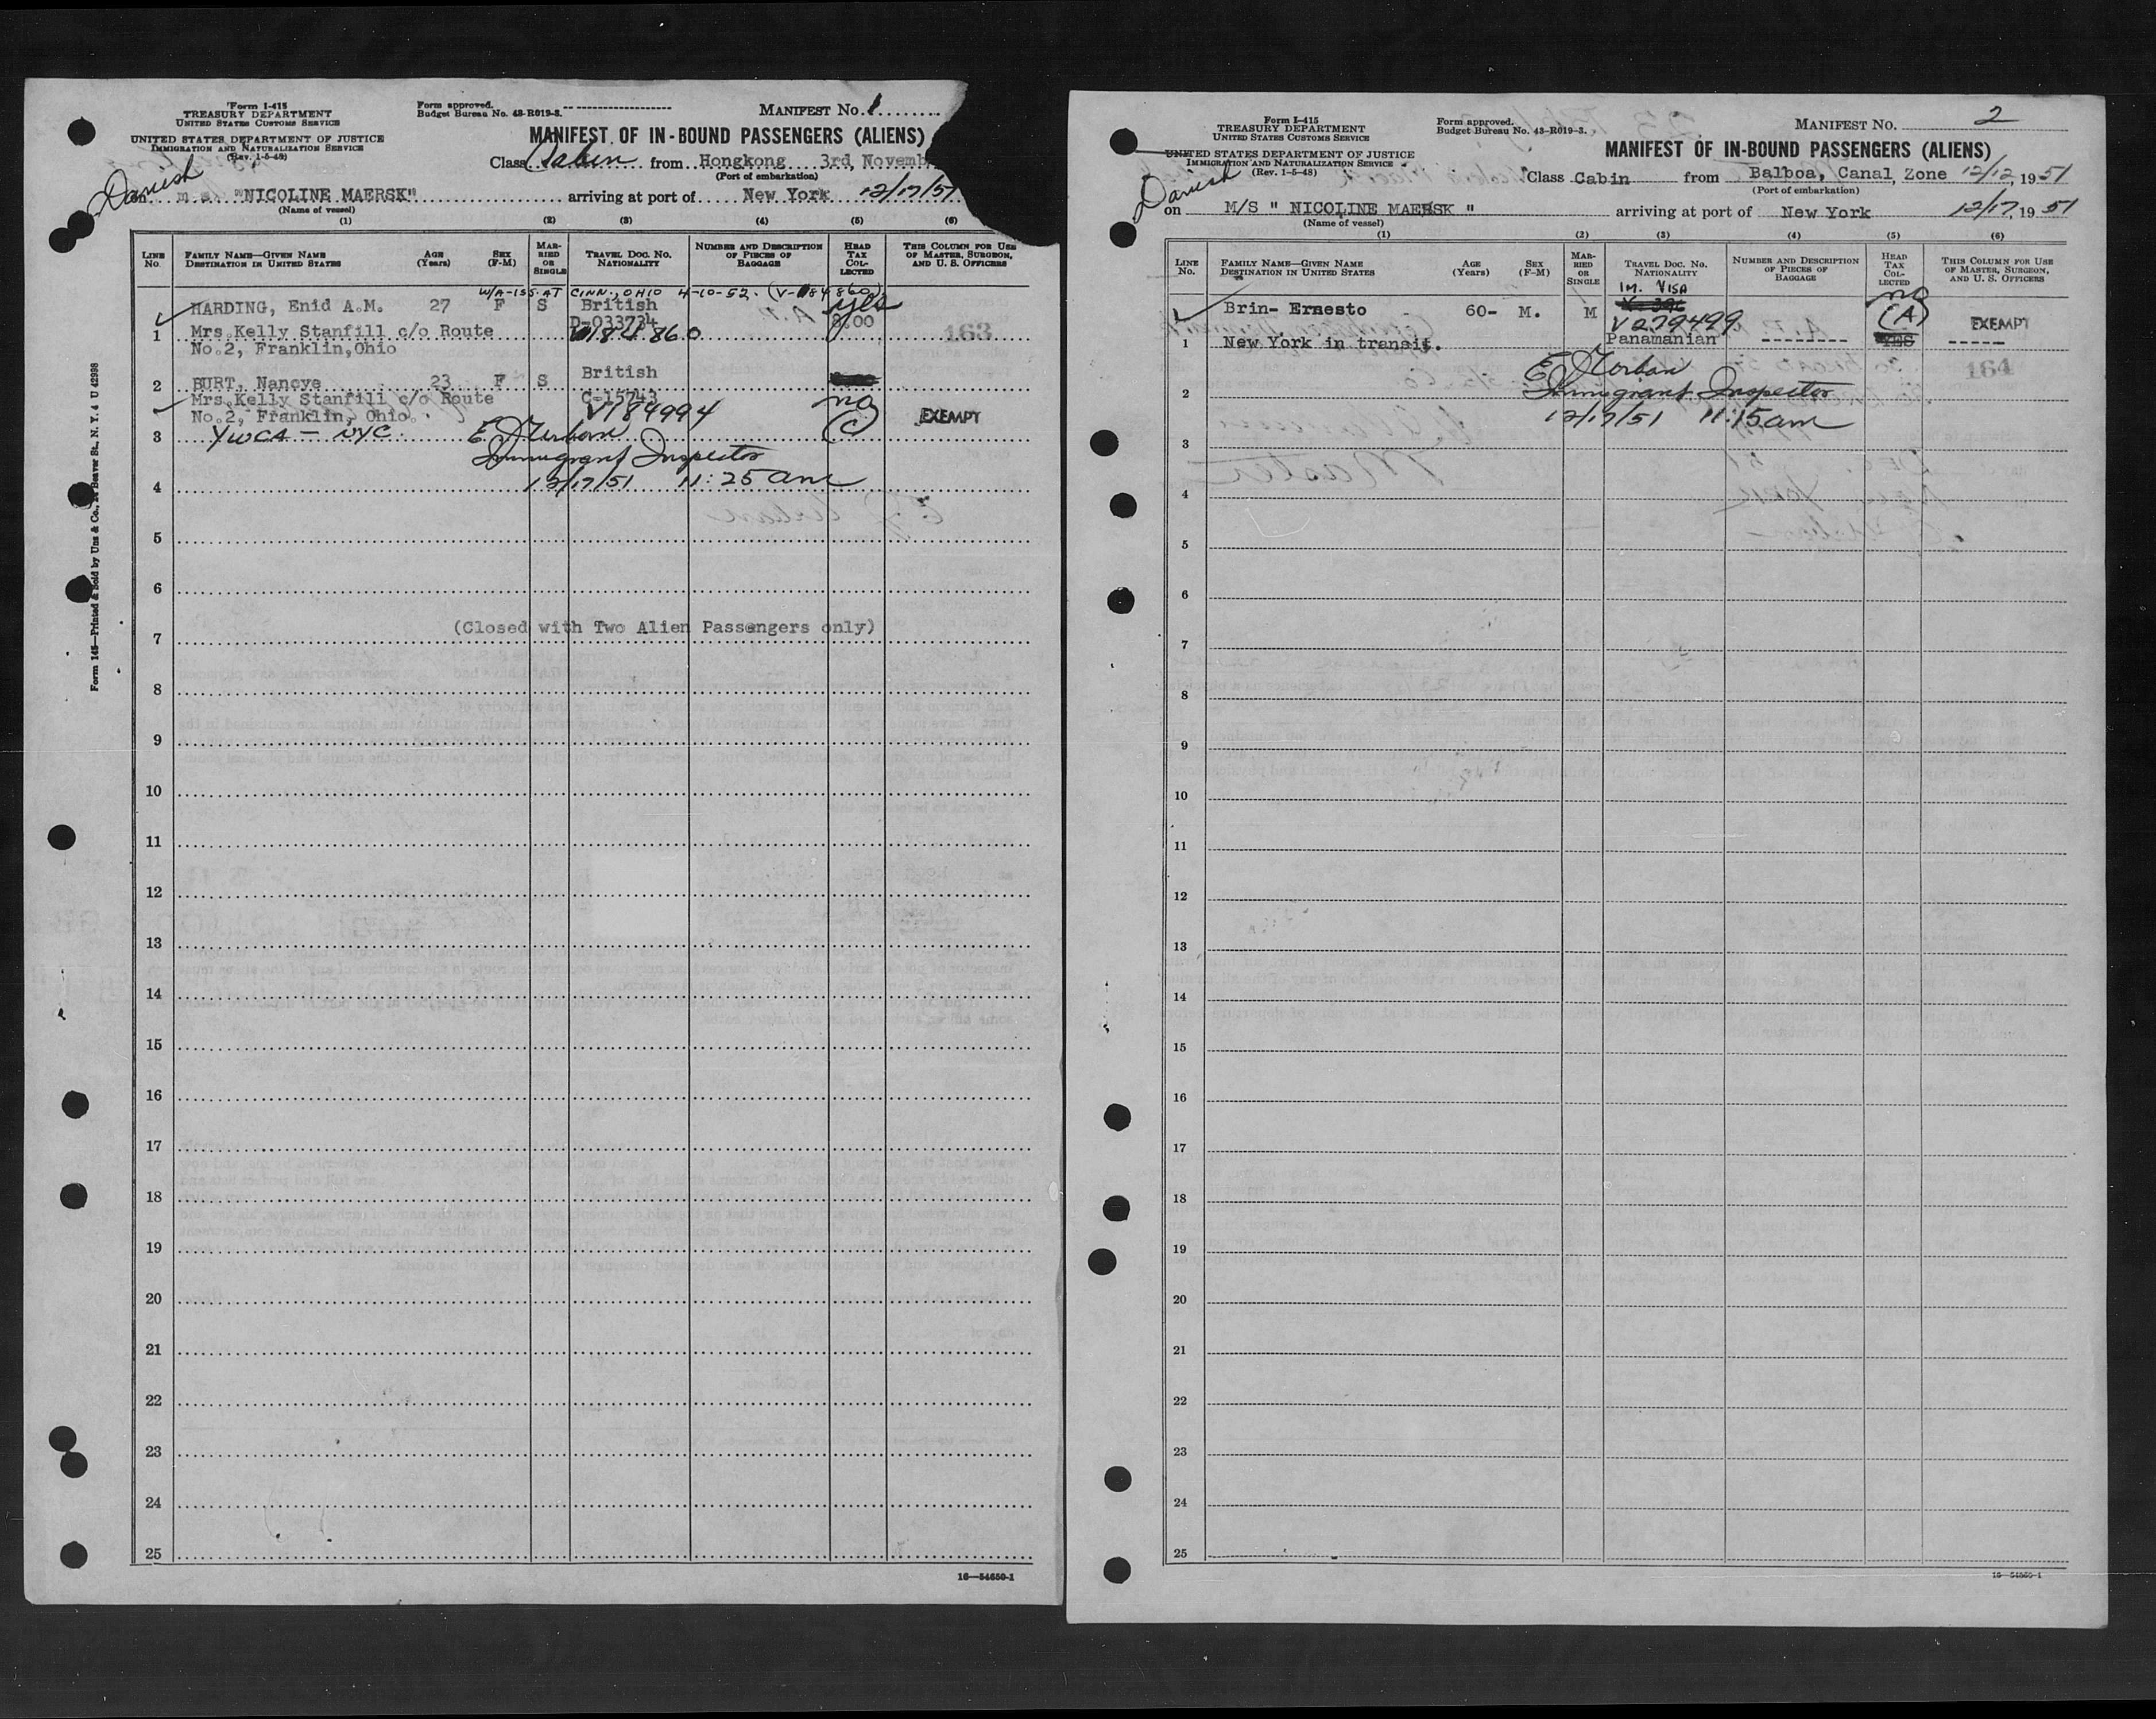 Form I-415
TREASURY DEPARTMENT
UNITED STATES CUSTOMS SERVICE
UNITED STATES DEPARTMENT OF JUSTICE
IMMIGRATION AND NATURALIZATION SERVICE
(Rev. 1-5-48)
Form approved.
Budget Bureau No. 43-R019-3.
MANIFEST No. 1
MANIFEST OF IN-BOUND PASSENGERS (ALIENS)
Class Cabin from Hongkong 3rd, Novemb
(Port of embarkation)
Danish
on m.s. "NICOLINE MAERSK" arriving at port of New York 12/17/51
(Name of vessel)
(1) (2) (3) (4) (5) (6)
LINE No. FAMILY NAME—GIVEN NAME DESTINATION IN UNITED STATES AGE (Years) SEX (F-M) MARRIED OR SINGLE TRAVEL DOC. NO. NATIONALITY NUMBER AND DESCRIPTION OF PIECES OF BAGGAGE HEAD TAX COLLECTED THIS COLUMN FOR USE OF MASTER, SURGEON, AND U. S. OFFICERS
W/A-ISS AT CINN., OHIO 4-10-52. (V-184860)
HARDING, Enid A.M. 27 F S British yes
D-033734 8.00 163
1 Mrs.Kelly Stanfill c/o Route V184860
No.2, Franklin,Ohio
British
2 BURT, Nancye 23 F S
Mrs.Kelly Stanfill c/o Route C-15743 no
No.2, Franklin, Ohio. V184994 (C) EXEMPT
3 YWCA — NYC. E J Urban
Immigrant Inspector
4 12/17/51 11:25 am
5
6
(Closed with Two Alien Passengers only)
7
8
9
10
11
12
13
14
15
16
17
18
19
20
21
22
23
24
25
16—54650-1
Form 145—Printed & Sold by Unz & Co., 24 Beaver St., N. Y. 4 U 42998
Form I-415
TREASURY DEPARTMENT
UNITED STATES CUSTOMS SERVICE
UNITED STATES DEPARTMENT OF JUSTICE
IMMIGRATION AND NATURALIZATION SERVICE
(Rev. 1-5-48)
Form approved.
Budget Bureau No. 43-R019-3.
MANIFEST No. 2
MANIFEST OF IN-BOUND PASSENGERS (ALIENS)
Class Cabin from Balboa, Canal Zone 12/12, 1951
(Port of embarkation)
Danish
on M/S " NICOLINE MAERSK " arriving at port of New York 12/17, 1951
(Name of vessel)
(1) (2) (3) (4) (5) (6)
LINE No. FAMILY NAME—GIVEN NAME DESTINATION IN UNITED STATES AGE (Years) SEX (F-M) MARRIED OR SINGLE TRAVEL DOC. NO. NATIONALITY NUMBER AND DESCRIPTION OF PIECES OF BAGGAGE HEAD TAX COLLECTED THIS COLUMN FOR USE OF MASTER, SURGEON, AND U. S. OFFICERS
IM. VISA no
Brin- Ernesto 60- M. M V-396 (A) EXEMPT
V279499
1 New York in transit. Panamanian YES
E J Urban 164
2 Immigrant Inspector
12/17/51 11:15am
3
4
5
6
7
8
9
10
11
12
13
14
15
16
17
18
19
20
21
22
23
24
25
16—54650-1